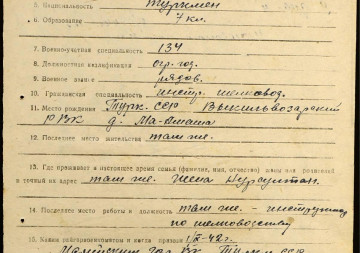 5. Национальность Туркмен
6. Образование 7 кл.
7. Военно-учетная специальность 134
8. Должностная квалификация огр. год.
9. Военное звание рядов.
10. Гражданская специальность инстр. шелковод.
11. Место рождения Турк. ССР
РВК д.
12. Последнее место жительства там же.
13. Где проживает в настоящее время семья (фамилия, имя, отчество) жены или родителей
и точный их адрес там же. Жена
14. Последнее место работы и должность там же. - инструктор
по шелководству
15. Каким райгорвоенкоматом и когда призван
РВК ССР